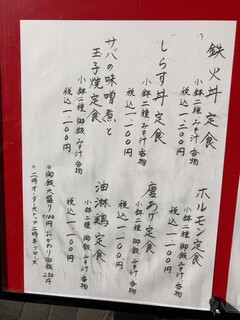 鉄火丼定食
小鉢二種 みそ汁 香物
税込一、二〇〇円
しらす丼定食
小鉢二種 みそ汁 香物
税込一、一〇〇円
サバの味噌煮と
玉子焼定食
小鉢二種 御飯 みそ汁 香物
税込一、一〇〇円
ホルモン定食
小鉢二種 御飯 みそ汁 香物
税込一、一〇〇円
唐あげ定食
小鉢二種 御飯 みそ汁 香物
税込一、一〇〇円
油淋鶏定食
小鉢二種 御飯 みそ汁 香物
税込一、一〇〇円
御飯大盛り 円 おかわり御飯 円
二時オーダーストップ 二時半クローズ